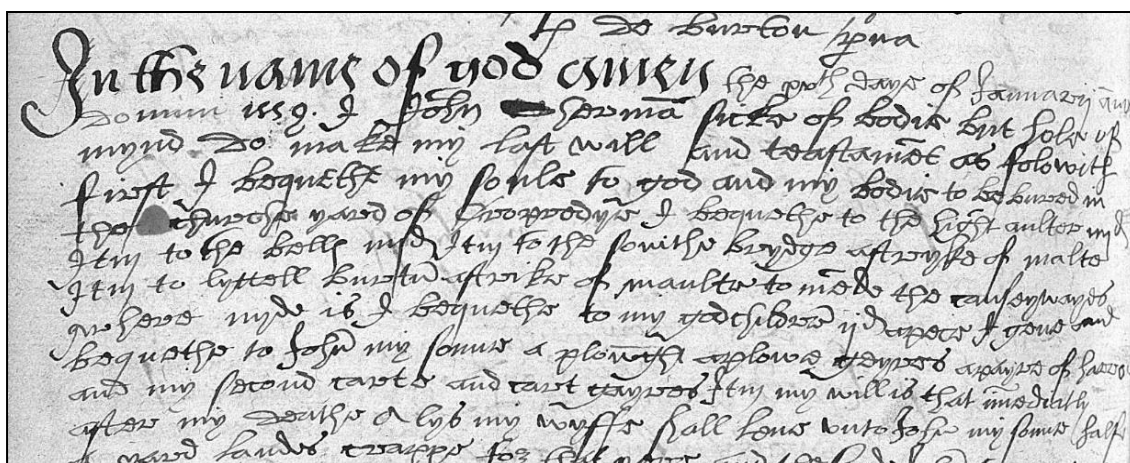 de burton
In the name of god amen the xvth daye of Januarij
domini 1559. I John herma sicke of bodie but hole of
mynd do make my last will and teastamet as folowith
first I bequethe my soule to god and my bodie to be bured in
the churche yared of Croppredye I bequethe to the hight aulter iiijd
Itm to the bells iiijd Itm to the southe brydge a stryke of malte
Itm to lyttell burtu a strike of maulte to mede the causeywayes
where nyde is I bequethe to my godchildere ijd apece I geve and
bequethe to John my sonne a plowgh a plowe geyres a payre of
and my second carte and cart gayres Itm my will is that imediatly
after my deathe Alys my wyffe shall leve unto John my sonne halfe
a yared landes croppe for that yere and the